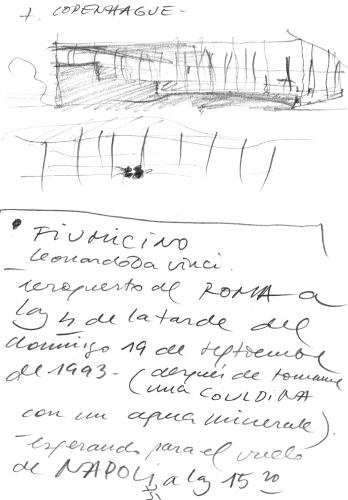 + COPENHAGUE -
• FIUMICINO
Leonardo Da Vinci.
Aeropuerto de ROMA a
las 4 de la tarde del
domingo 19 de septiembre
de 1993 - (después de tomarme
una COULDINA
con un agua minerale).
- esperando para el vuelo
de NAPOLI a las 15 20